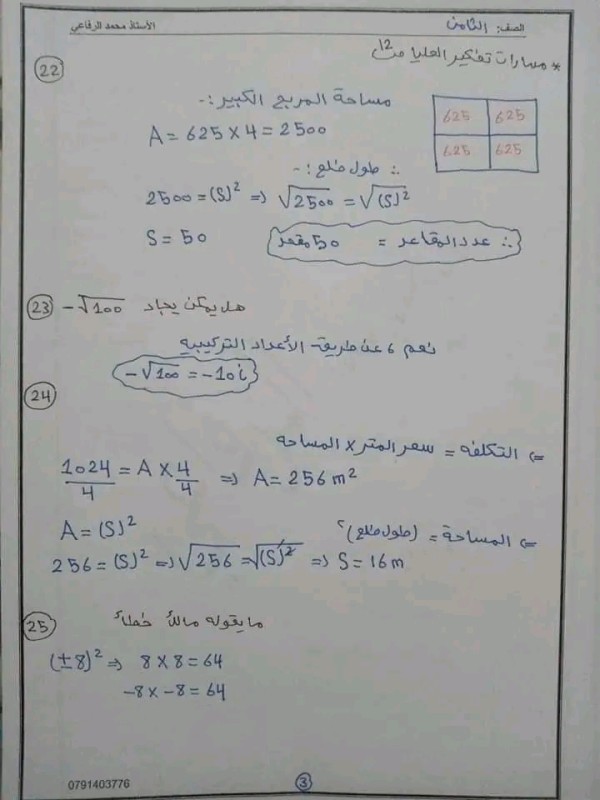 الصف: الثامن
الأستاذ محمد الرفاعي
* مهارات تفكير العليا ص 12
22
مساحة المربع الكبير :-
625 625
625 625
A = 625 × 4 = 2500
∴ طول ضلع :-
2500 = (S)² ⇒ √2500 = √(S)²
S = 50
∴ عدد المقاعد = 50 مقعد
23 هل يمكن يجاد -√100
نعم، عن طريق الأعداد التركيبيه
-√100 = -10i
24
⇐ التكلفه = سعر المتر × المساحه
1024/4 = A × 4/4 ⇒ A = 256 m²
⇐ المساحة = (طول ضلع)²
A = (S)²
256 = (S)² ⇒ √256 = √(S)² ⇒ S = 16 m
25 ما يقوله مالك خطأ
(±8)² ⇒ 8 × 8 = 64
-8 × -8 = 64
3
0791403776